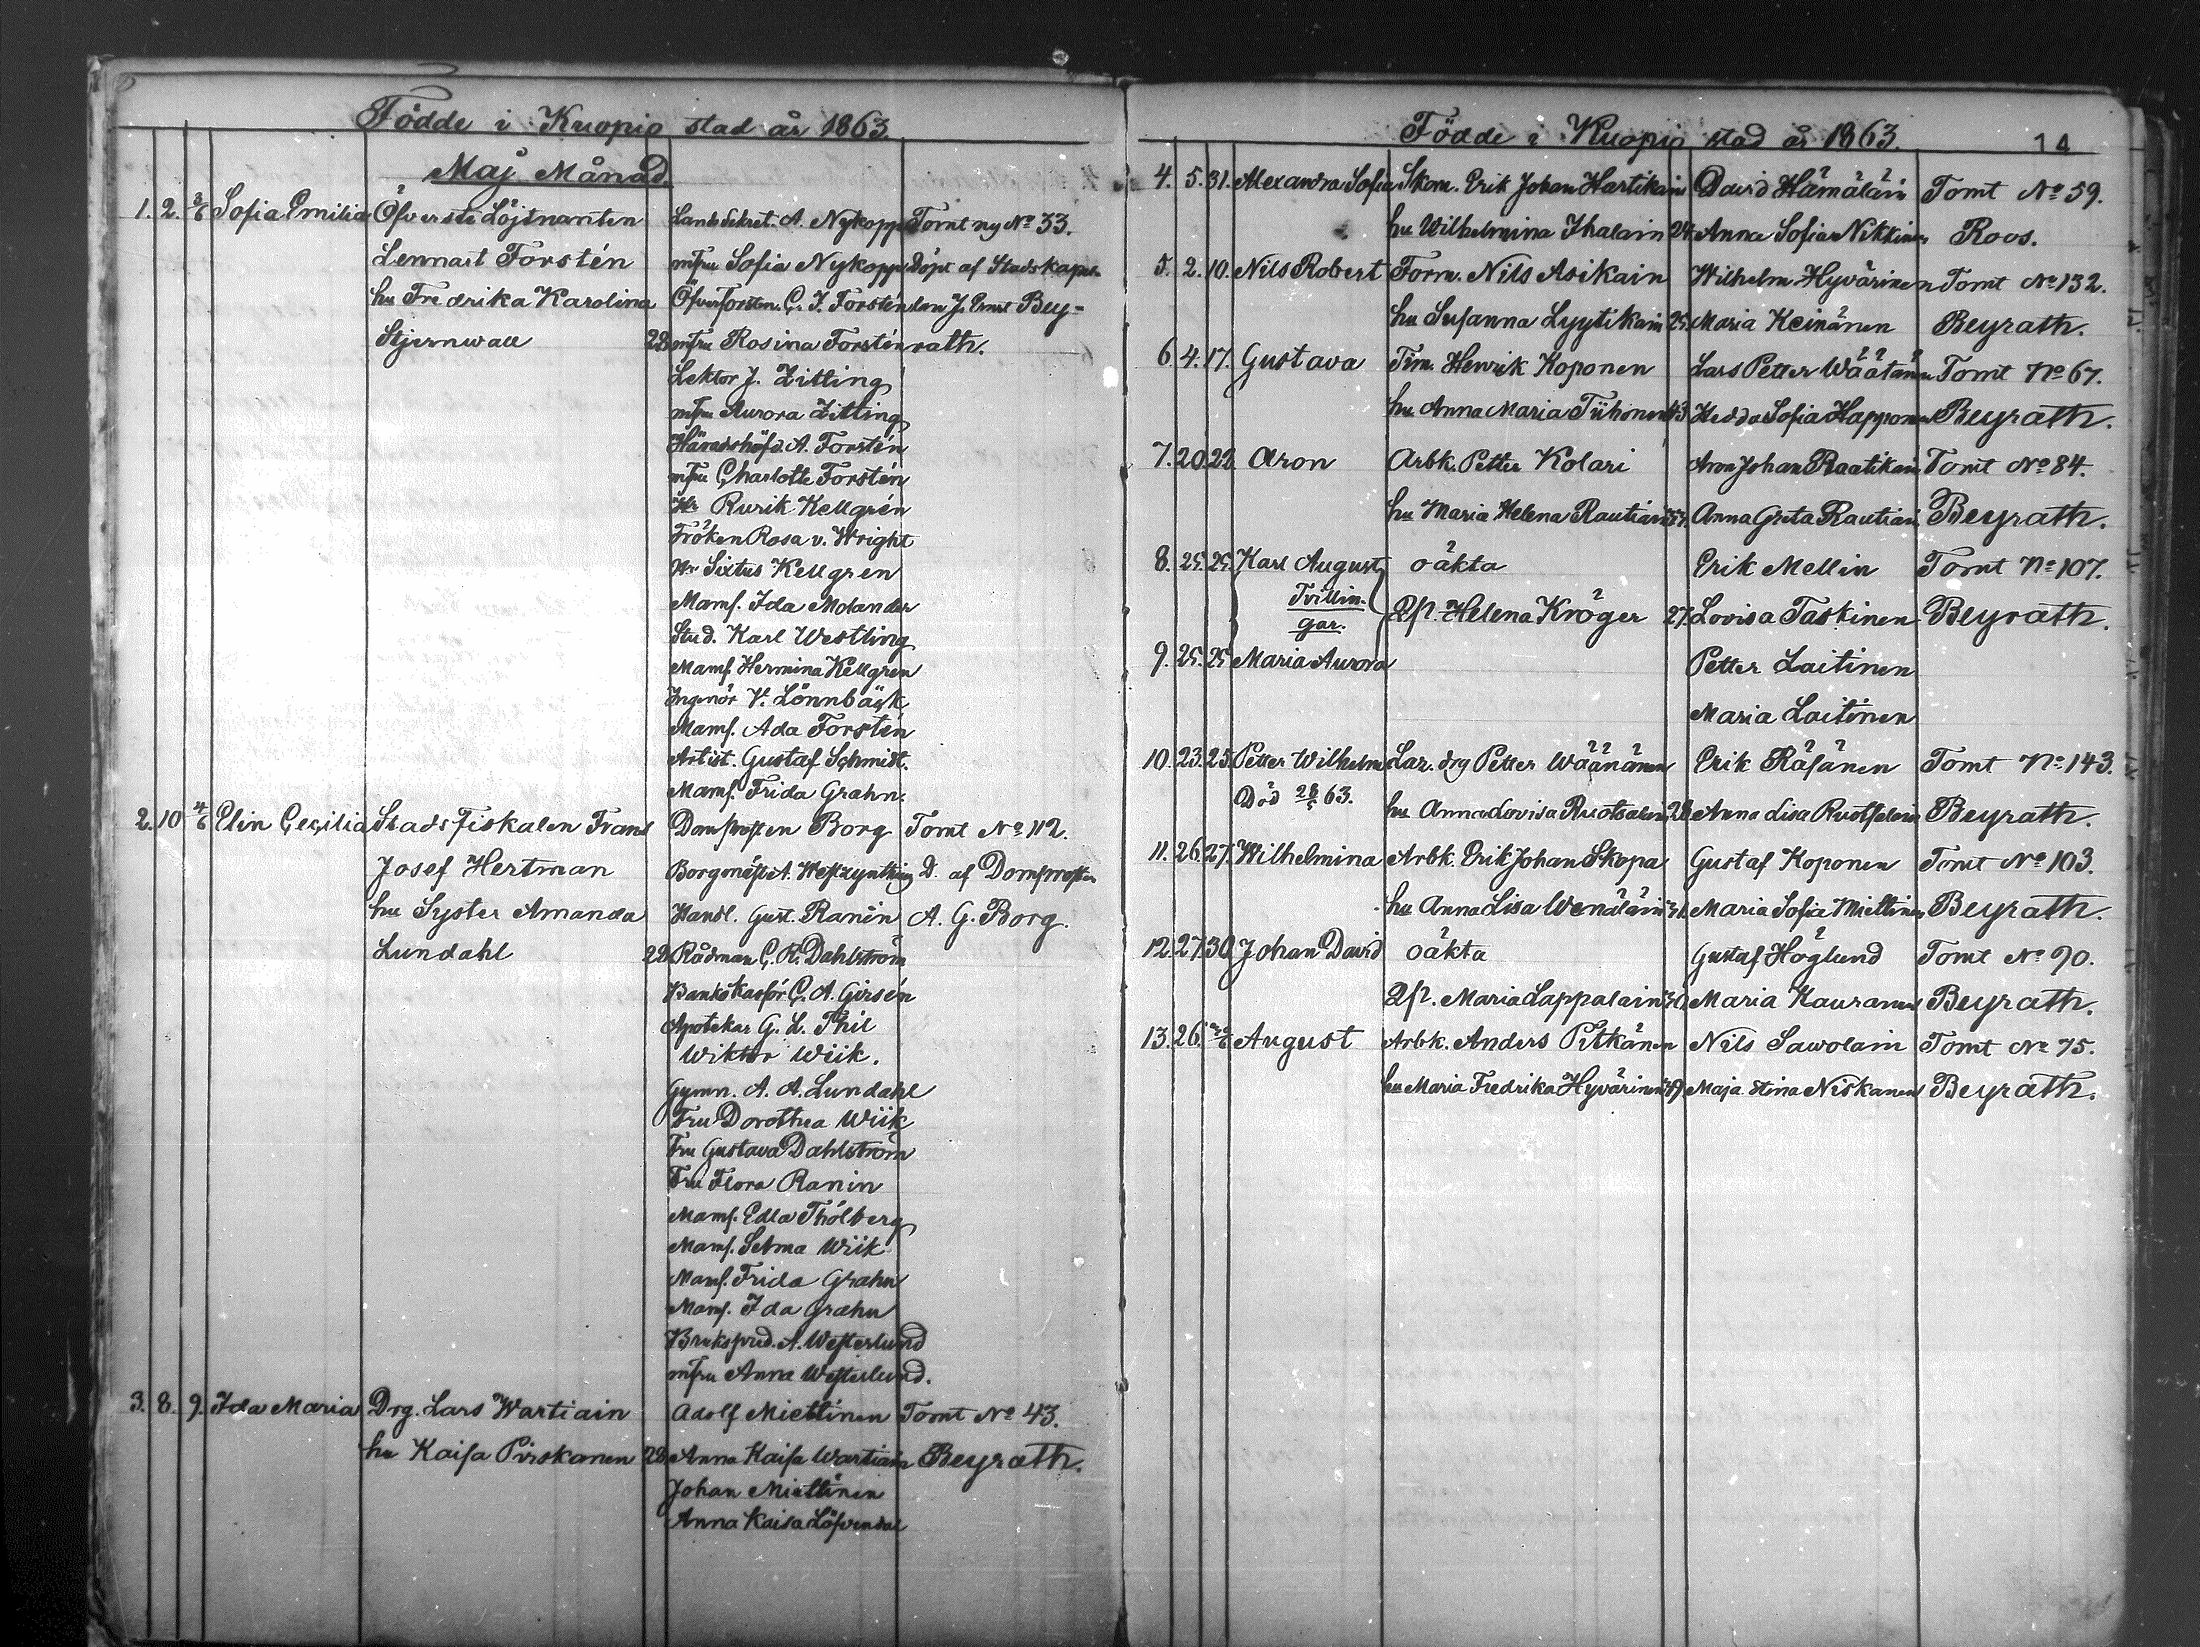 Födde i Kuopio stad år 1863
Maj Månad.
1. 2. 3/6 Sofia Emilia Öfverste Löjtnanten Landssekret. A. Nykopp Tomt ny No 33.
Lennart Forstén mfru Sofia Nykopp Döpt af Stadskapel-
hu Fredrika Karolina Öfverforstm. C. J. Forstén lan J. Ernst Bey-
Stjernwall 22 mfru Rosina Forstén rath.
Lektor J. Zitting
mfru Aurora Zitting
Häradshöfd. A. Forstén
mfru Charlotte Forstén
Hr Rurik Kellgrén
Fröken Rosa v. Wright
Hr Sixtus Kellgren
Mams. Ida Molander
Stud. Karl Westling
Mams. Hermina Kellgren
Ingenör V. Lönnbäck
Mams. Ada Forstén
Artist. Gustaf Schmidt.
Mams. Frida Grahn.
2. 10 4/6 Elin Cecilia Stads Fiskalen Frans Domprosten Borg Tomt No 112.
Josef Hertman Borgmäst. A. D. af Domprosten
hu Syster Amanda Handl. Gust. Ranin A. G. Borg.
Lundahl 22 Rådman C. R. Dahlström
Bankskassör C. A. Girsén
Apotekar G. L. Thil
Wiktor Wiik.
Gymn. A. A. Lundahl
Fru Dorothea Wiik
Fru Gustava Dahlström
Fru Flora Ranin
Mams. Edla Thólberg
Mams. Selma Wiik
Mams. Frida Grahn
Mams. Ida Grahn
Brukspred. A. Westerlund
mfru Anna Westerlund.
3. 8. 9. Ida Maria Drg. Lars Wartiain Adolf Miettinen Tomt No 43.
hu Kaisa Piiskanen 22 Anna Kaisa Wartiain Beyrath.
Johan Miettinen
Anna Kaisa Löfvendal
Födde i Kuopio stad år 1863. 14
4. 5. 31. Alexandra Sofia Skom. Erik Johan Hartikain David Hämäläin Tomt No 59.
hu Wilhelmina Ihalain 24 Anna Sofia Nikkinen Roos.
5. 2. 10. Nils Robert Form. Nils Asikain Wilhelm Hyvärinen Tomt No 132.
hu Susanna Lyytikäin 25 Maria Keinänen Beyrath.
6. 4. 17. Gustava Tim. Henrik Koponen Lars Petter Wäätänen Tomt No 67.
hu Anna Maria Tiihonen 43 Hedda Sofia Happonen Beyrath.
7. 20. 22 Aron Arbk. Petter Kolari Aron Johan Raatikain Tomt No 84.
hu Maria Helena Rautiain Anna Greta Rautiain Beyrath.
8. 25. 25. Karl August oäkta Erik Mellin Tomt No 107.
Tvillin-
gar. Qp. Helena Kröger 27. Lovisa Taskinen Beyrath.
9. 25. 25 Maria Aurora Petter Laitinen
Maria Laitinen
10. 23. 25. Petter Wilhelm Laz. drg Petter Wäänänen Erik Räsänen Tomt No 143.
Död 28/5 63. hu Anna Lovisa Ruotsalain 28 Anna Lisa Ruotsalain Beyrath.
11. 26. 27. Wilhelmina Arbk. Erik Johan Skopa Gustaf Koponen Tomt No 103.
hu Anna Lisa Wenäläin Maria Sofia Miettinen Beyrath.
12. 27. 30. Johan David oäkta Gustaf Höglund Tomt No 90.
Qp. Maria Lappalain 30. Maria Kauranen Beyrath.
13. 26. August Arbk. Anders Pitkänen Nils Sawolain Tomt No 75.
hu Maria Fredrika Hyvärinen Maja Stina Niskanen Beyrath.